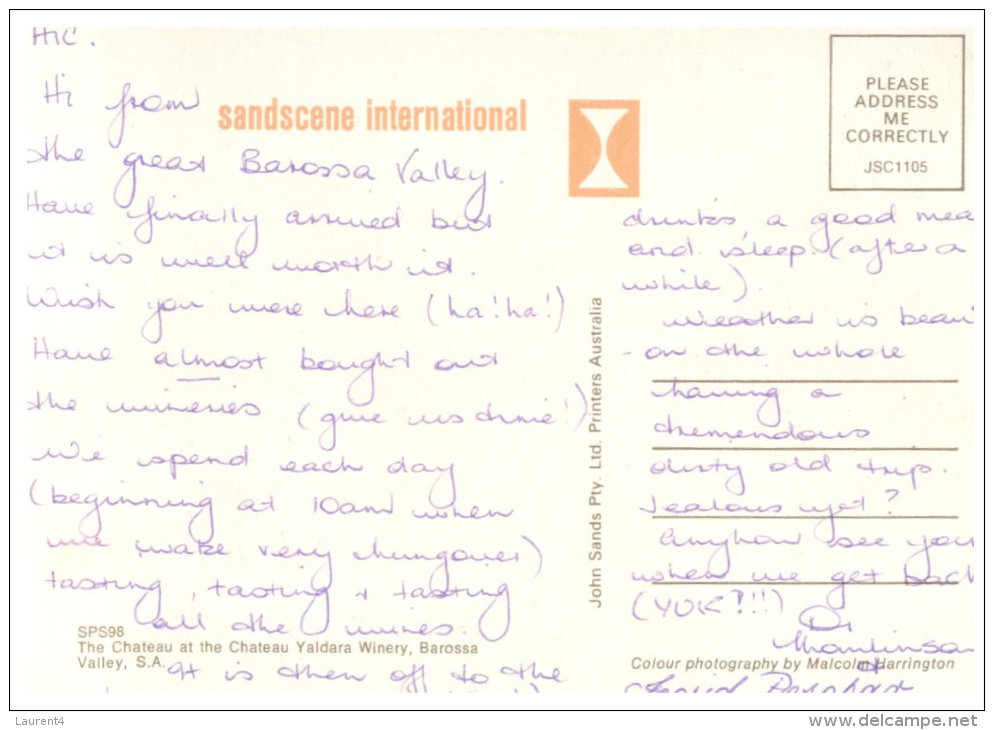 HIC.
Hi from
sandscene international
the great Barossa Valley.
Have finally arrived but
it is well worth it.
Wish you were here (ha!ha!)
Have almost bought out
the wineries (give us time!)
We spend each day
(beginning at 10am when
we wake very hungover)
tasting, tasting & tasting
all the wines.
It is then off to the
SPS98
The Chateau at the Chateau Yaldara Winery, Barossa
Valley, S.A.
John Sands Pty. Ltd. Printers Australia
PLEASE
ADDRESS
ME
CORRECTLY
JSC1105
drinks, a good mea
and sleep. (after a
while).
Weather is beau
- on the whole
having a
tremendous
dirty old trip.
Jealous yet?
Anyhow see you
when we get back
(YUK?!!)
Di
&
Colour photography by Malcolm Harrington
Laurent4
www.delcampe.net